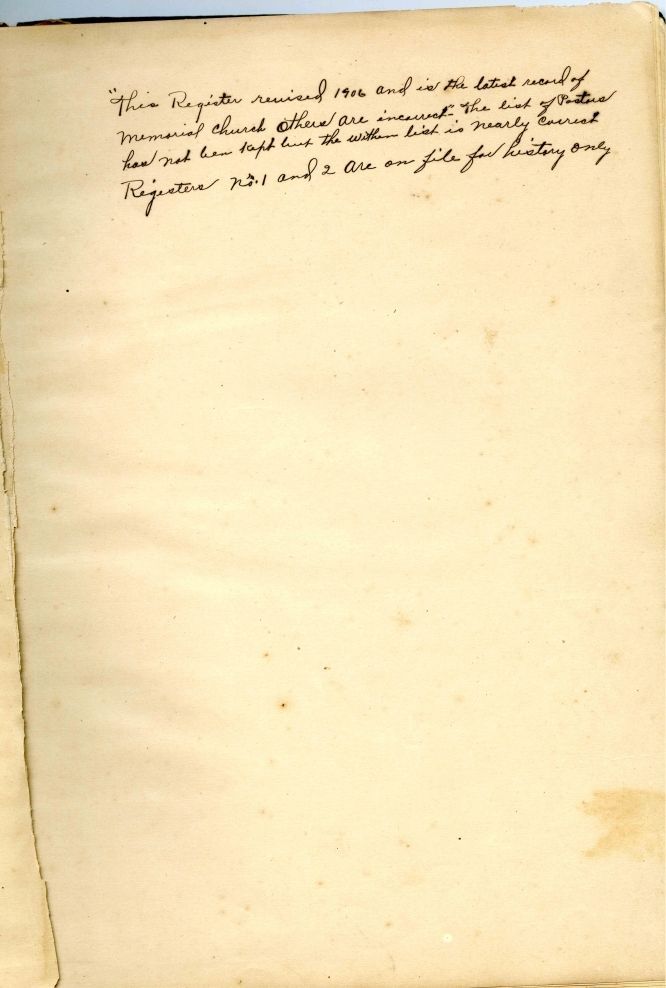 "This Register revised 1906 and is the latest record of
Memorial Church Others are incorrect" The list of Pastors
has not been kept but the within list is nearly correct
Registers No. 1 and 2 are on file for history only